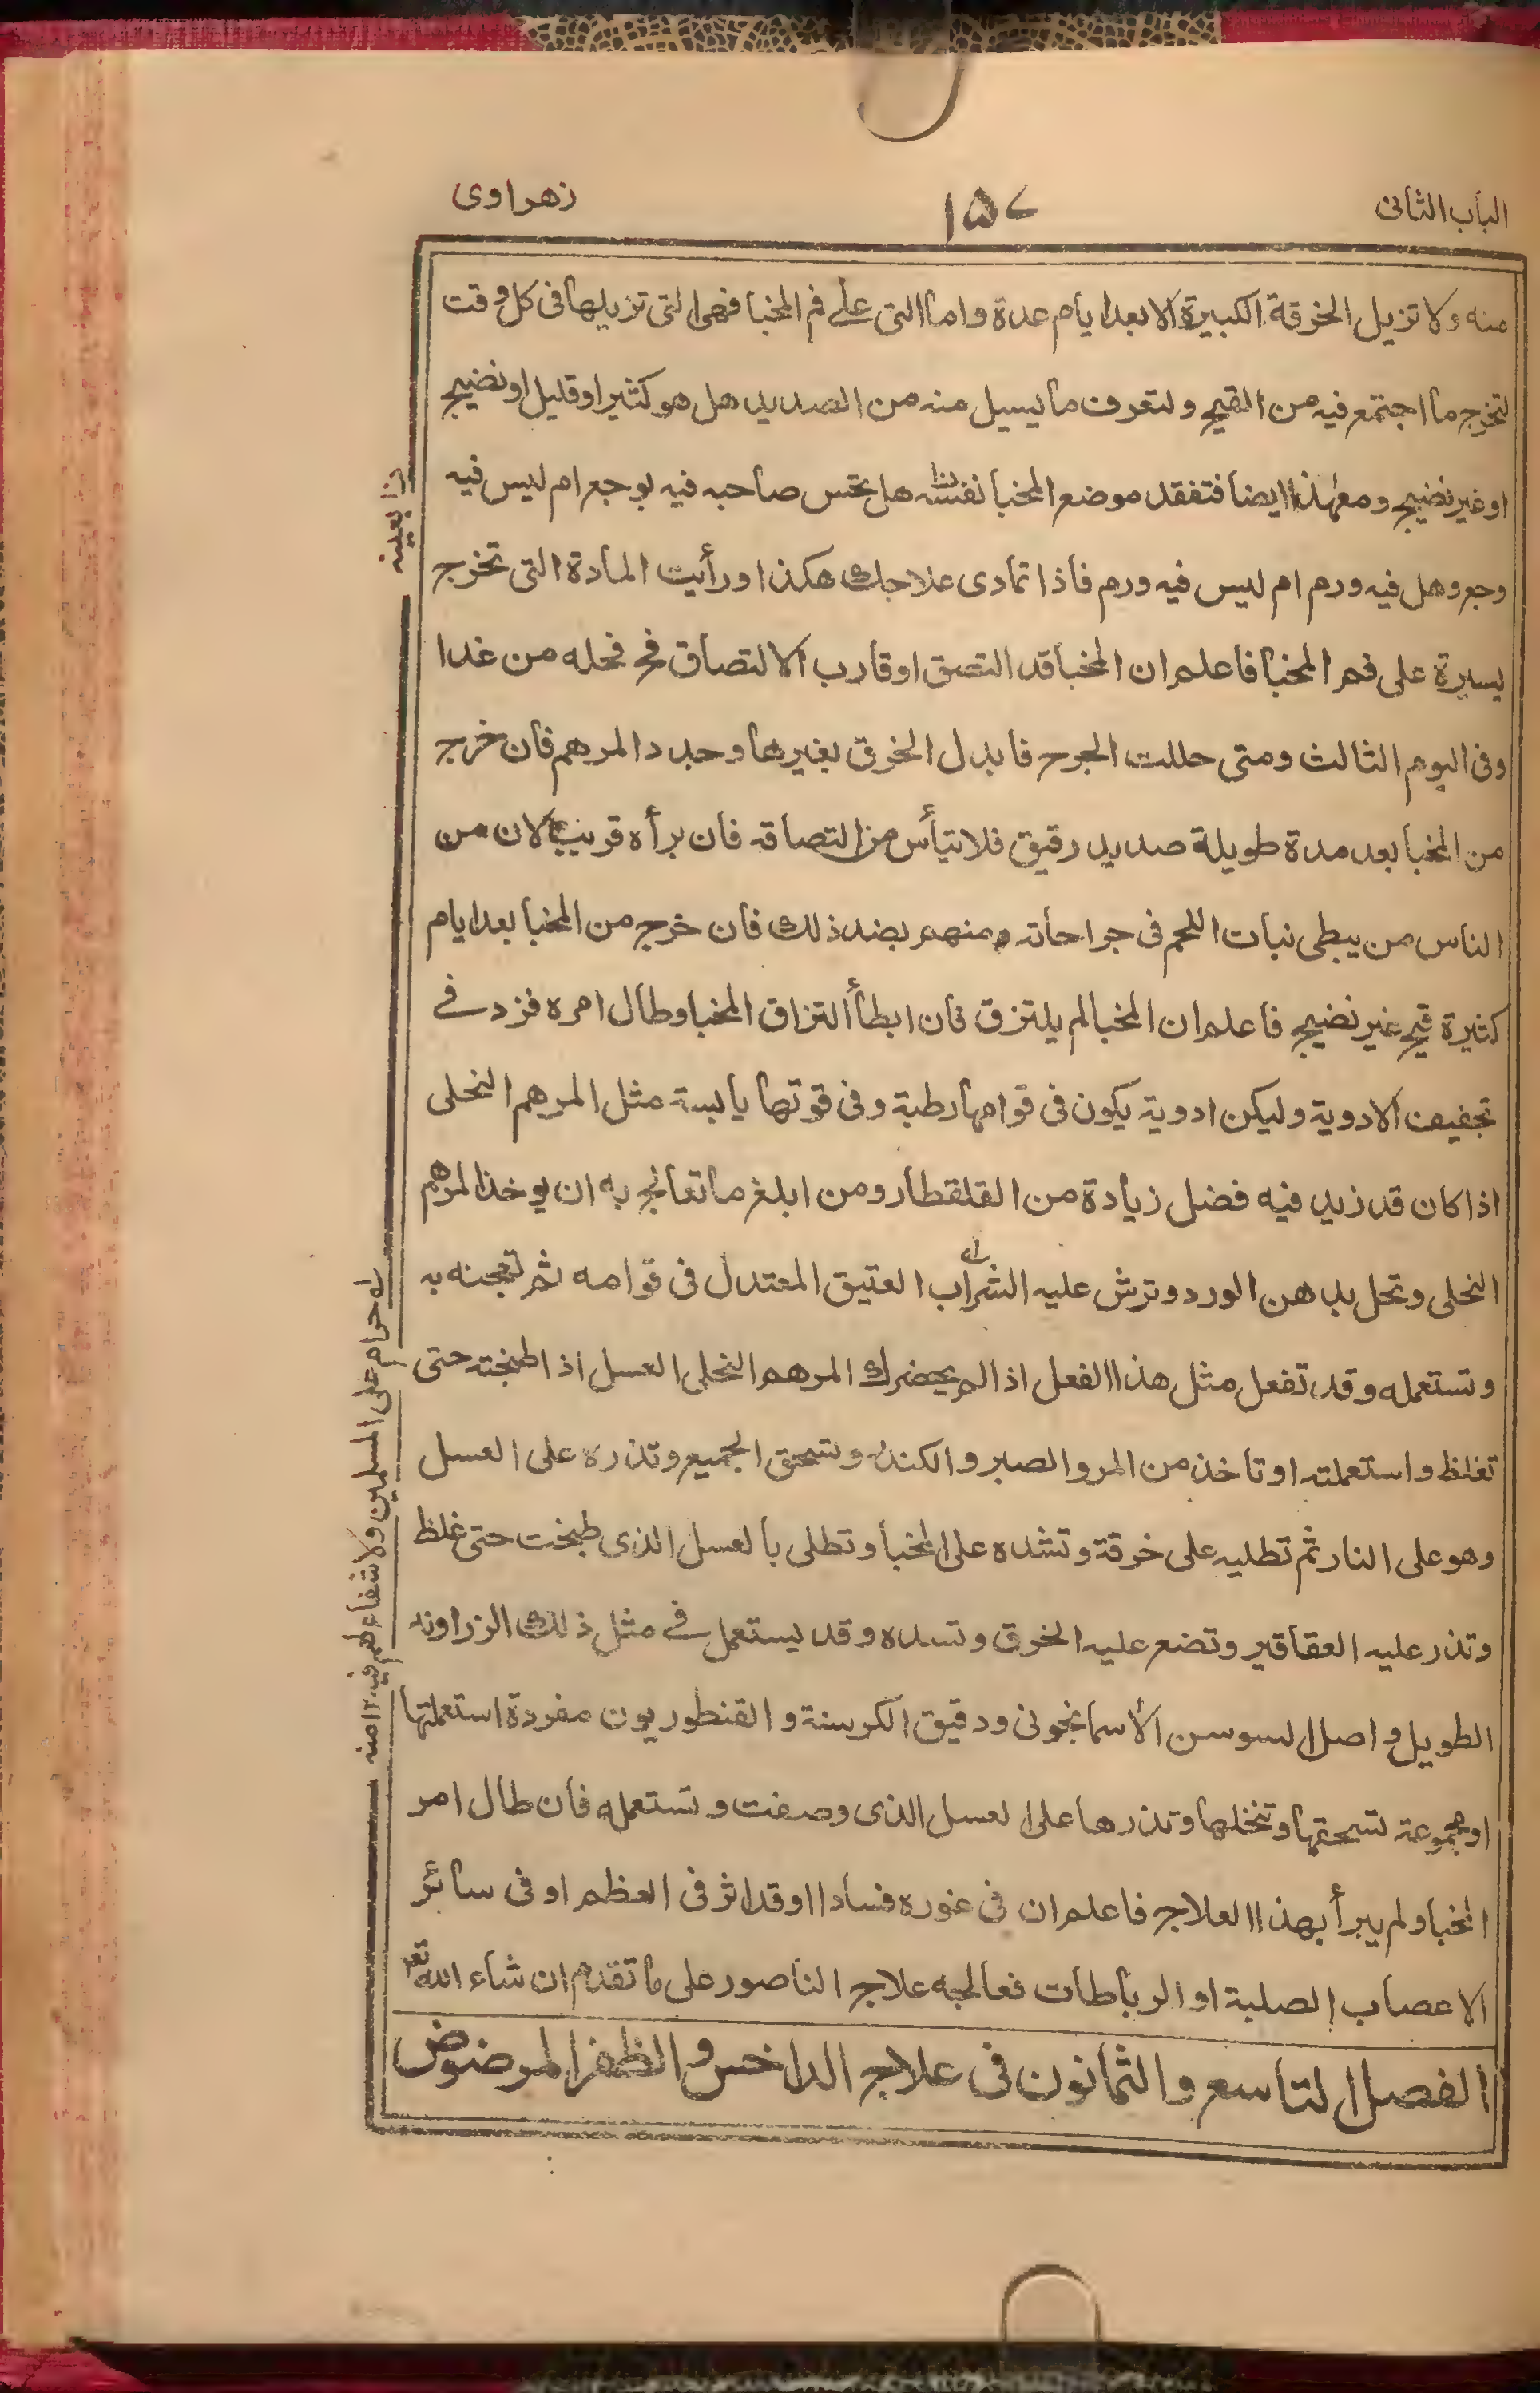 الباب الثانى
۱۵۷
زهراوى
منه ولا تزيل الخرقة الكبيرة الا بعد ايام عدة واما التى على فم المخبا فهى التى تزيلها فى كل وقت
لتخرج ما اجتمع فيه من القيح ولتعرف ما يسيل منه من الصديد هل هو كثير او قليل او نضيج
او غير نضيج ومع هذا ايضا فتفقد موضع المخبا نفسه هل يحس صاحبه فيه بوجع ام ليس فيه
وجع وهل فيه ورم ام ليس فيه ورم فاذا تمادى علاجك هكذا ورأيت المادة التى تخرج
يسيرة على فم المخبا فاعلم ان المخبا قد التصق او قارب الالتصاق فح فحله من غدا
وفى اليوم الثالث ومتى حللت الجرح فابدل الخرق بغيرها وجدد المرهم فان خرج
من المخبا بعد مدة طويلة صديد رقيق فلا تيأس من التصاقه فان برأه قريب لان من
الناس من يبطى نبات اللحم فى جراحاته ومنهم بضد ذلك فان خرج من المخبا بعد ايام
كثيرة قيح غير نضيج فاعلم ان المخبا لم يلتزق فان ابطأ التزاق المخبا وطال امره فزد فى
تجفيف الادوية وليكن ادوية يكون فى قوامها رطبة وفى قوتها يابسة مثل المرهم النخلى
اذا كان قد زيد فيه فضل زيادة من القلقطار ومن ابلغ ما تعالج به ان يوخذ المرهم
النخلى وتحل بدهن الورد وترش عليه الشراب العتيق المعتدل فى قوامه ثم تعجنه به
وتستعمله وقد تفعل مثل هذا الفعل اذا لم يحضرك المرهم النخلى العسل اذا طبخته حتى
تغلظ واستعملته او تاخذ من المر والصبر والكندر وتسحق الجميع وتذره على العسل
وهو على النار ثم تطليه على خرقة وتشده على المخبا وتطلى بالعسل الذى طبخت حتى غلظ
وتذر عليه العقاقير وتضع عليه الخرق وتسده وقد يستعمل فى مثل ذلك الزراوند
الطويل واصل السوسن الاسمانجونى ودقيق الكرسنة والقنطوريون مفردة استعملتها
او مجموعة تسحقها وتنخلها وتذرها على العسل الذى وصفت وتستعمله فان طال امر
المخبا ولم يبرأ بهذا العلاج فاعلم ان فى غوره فسادا او قد اثر فى العظم او فى سائر
الاعصاب الصلبة او الرباطات فعالجه علاج الناصور على ما تقدم ان شاء الله تعم
الفصل التاسع والثمانون فى علاج الداخس والظفر المرضوض
ن بعينه
له حرام على المسلمين ولا شفاء لهم فيه ۱۲ منه